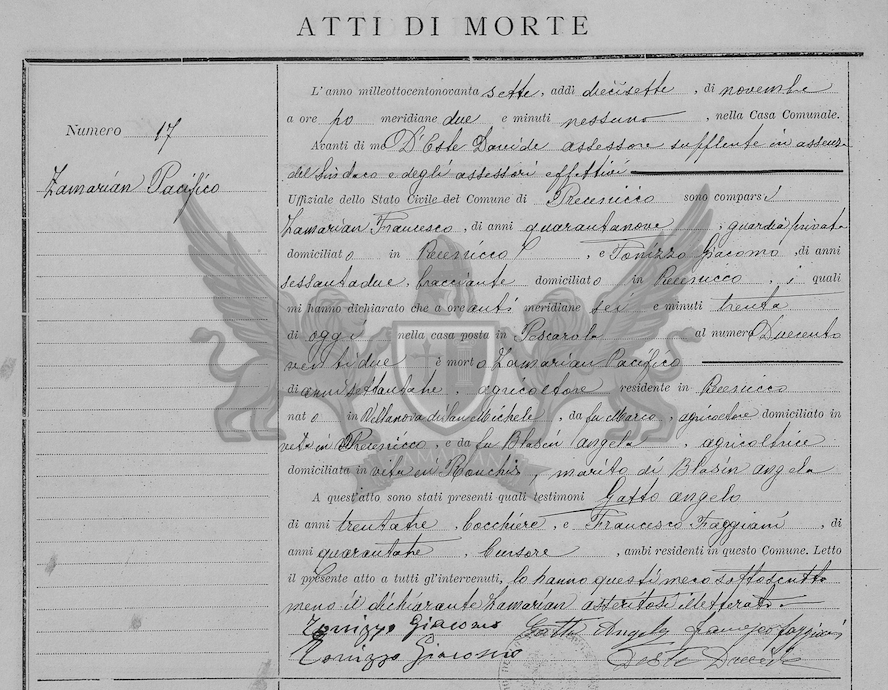 ATTI DI MORTE
Numero 17
Zamarian Pacifico
L'anno milleottocentonovanta sette, addì diecisette, di novembre
a ore po meridiane due e minuti nessuno, nella Casa Comunale.
Avanti di me D'Este Davide assessore supplente in assenza
del Sindaco e degli assessori effettivi
Uffiziale dello Stato Civile del Comune di Precenicco sono comparsi
Zamarian Francesco, di anni quarantanove, guardia privata
domiciliato in Precenicco, e Tonizzo Giacomo, di anni
sessantadue, bracciante domiciliato in Precenicco, i quali
mi hanno dichiarato che a ore anti meridiane sei e minuti trenta
di oggi nella casa posta in Pescarola al numero Duecento
ventidue è morto Zamarian Pacifico
di anni settantatre, agricoltore residente in Precenicco
nato in Villanova di San Michele, da fu Marco, agricoltore domiciliato in
vita in Precenicco, e da fu Blasin Angela, agricoltrice
domiciliata in vita in Ronchis, marito di Blasin Angela
A quest'atto sono stati presenti quali testimoni Gatto Angelo
di anni trentatre, Cocchiere, e Francesco Faggiani, di
anni quarantatre, Cursore, ambi residenti in questo Comune. Letto
il presente atto a tutti gl'intervenuti, lo hanno questi meco sottoscritto
meno il dichiarante Zamarian asseritosi illetterato.
Tonizzo Giacomo Gatto Angelo Francesco Faggiani
Tonizzo Giacomo D'Este Davide